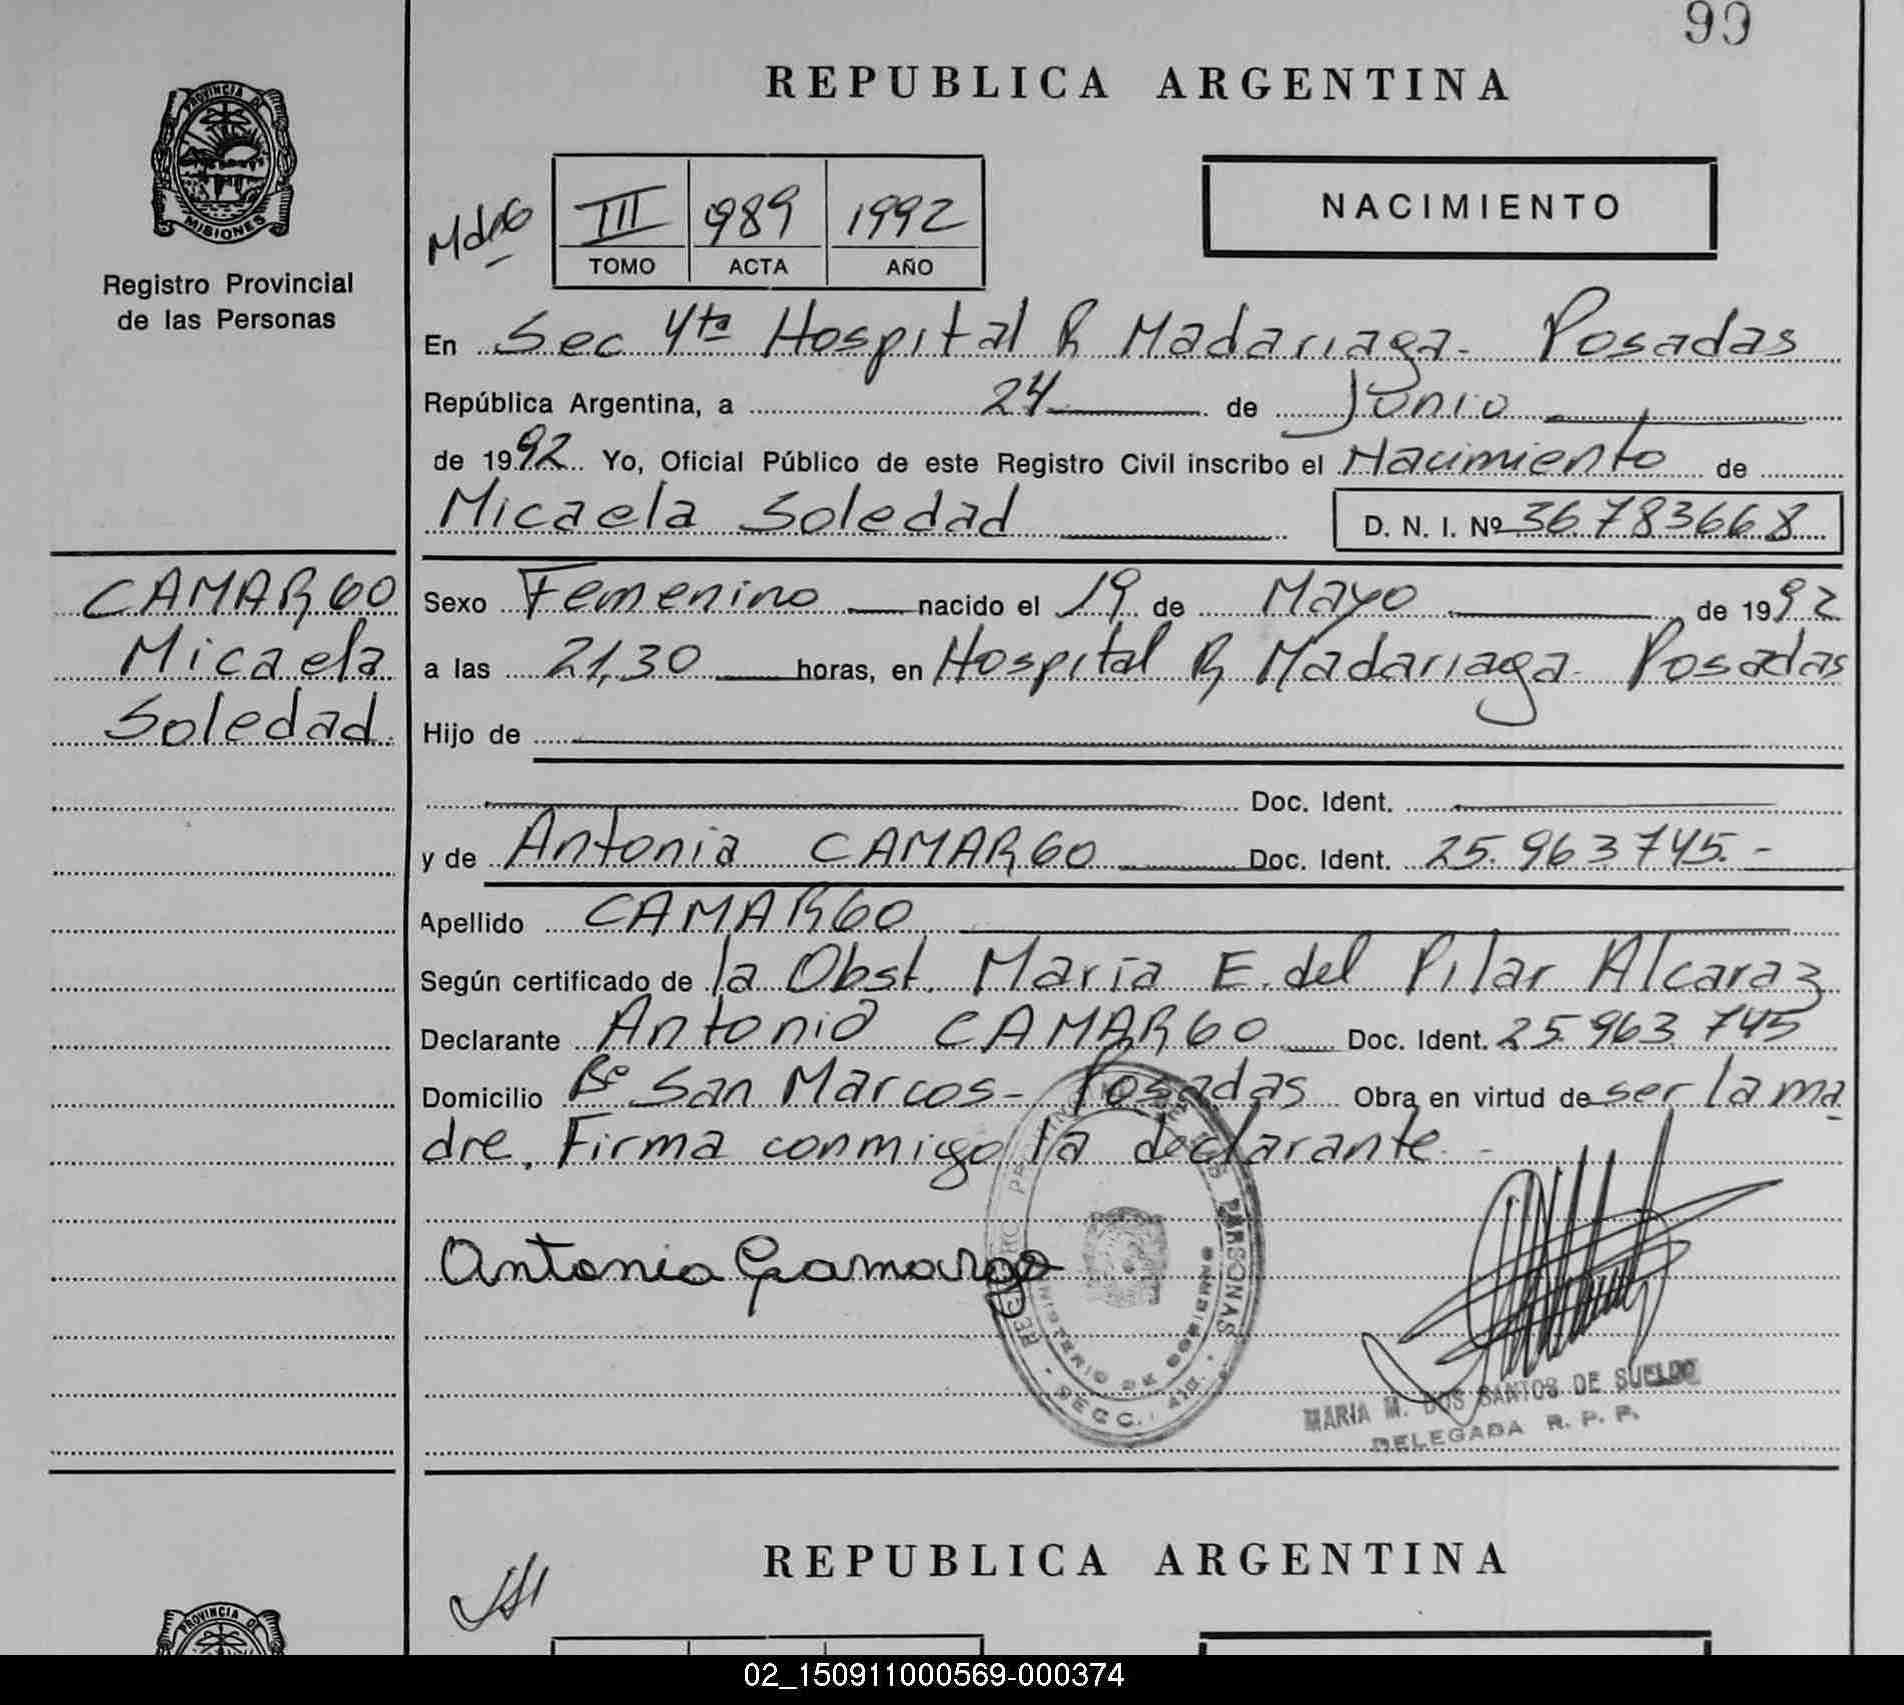 99
REPUBLICA ARGENTINA
PROVINCIA DE
MISIONES
Registro Provincial
de las Personas
III 989 1992
TOMO ACTA AÑO
NACIMIENTO
En Sec 4ta Hospital R Madariaga- Posadas
República Argentina, a 24 de Junio
de 1992 Yo, Oficial Público de este Registro Civil inscribo el Nacimiento de
Micaela Soledad D. N. I. Nº 36.783668
CAMARGO
Micaela
Soledad
Sexo Femenino nacido el 19 de Mayo de 1992
a las 21,30 horas, en Hospital R Madariaga- Posadas
Hijo de
Doc. Ident.
y de Antonia CAMARGO Doc. Ident. 25.963745.-
Apellido CAMARGO
Según certificado de la Obst. María E. del Pilar Alcaraz
Declarante Antonia CAMARGO Doc. Ident. 25.963.745
Domicilio Bº San Marcos- Posadas Obra en virtud de ser la ma
dre. Firma conmigo la declarante.-
Antonia Camargo
PERSONAS
SECC. 4ta.
MARIA M. DOS SANTOS DE SUELDO
DELEGADA R. P. P.
REPUBLICA ARGENTINA
PROVINCIA DE
02_150911000569-000374